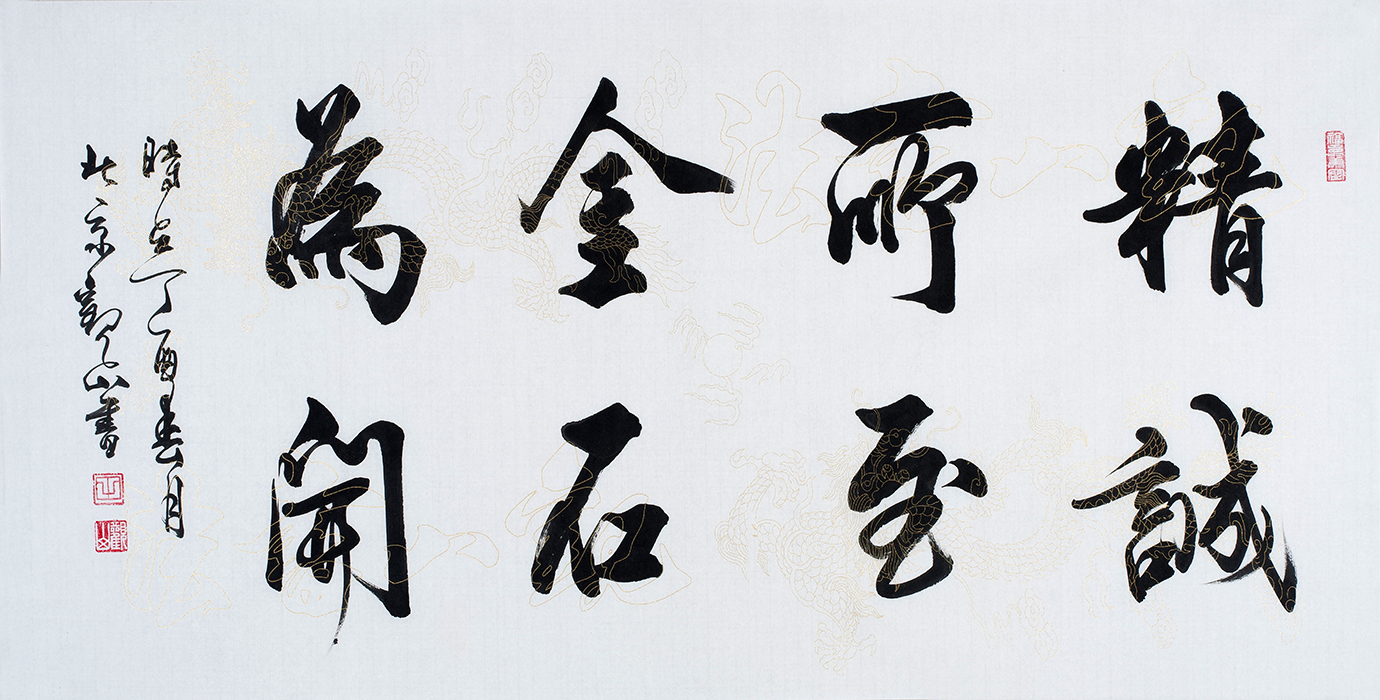 精誠
所至
金石
為開
時在丁酉春月
北京觀山書